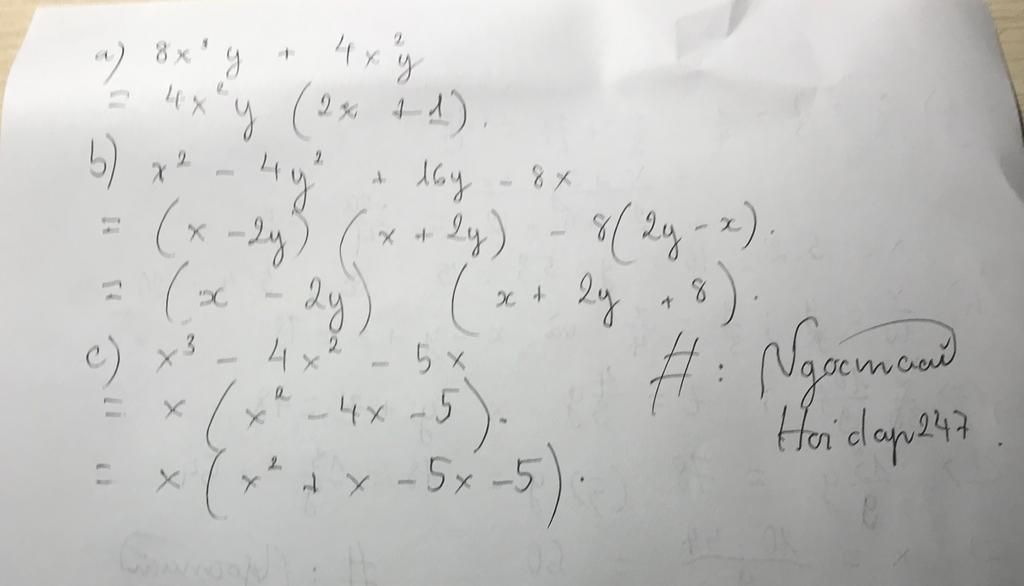 a) 8x³y + 4x²y
= 4x²y (2x + 1).
b) x² - 4y² + 16y - 8x
= (x - 2y) (x + 2y) - 8(2y - x).
= (x - 2y) (x + 2y + 8).
c) x³ - 4x² - 5x
= x (x² - 4x - 5).
= x (x² + x - 5x - 5).
#: Ngocmaai
Hoidap247.